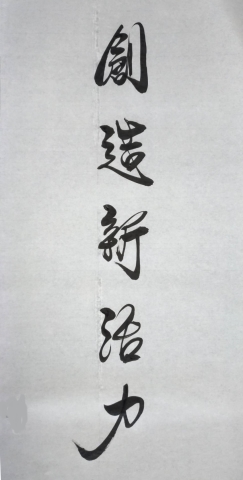 創造新活力